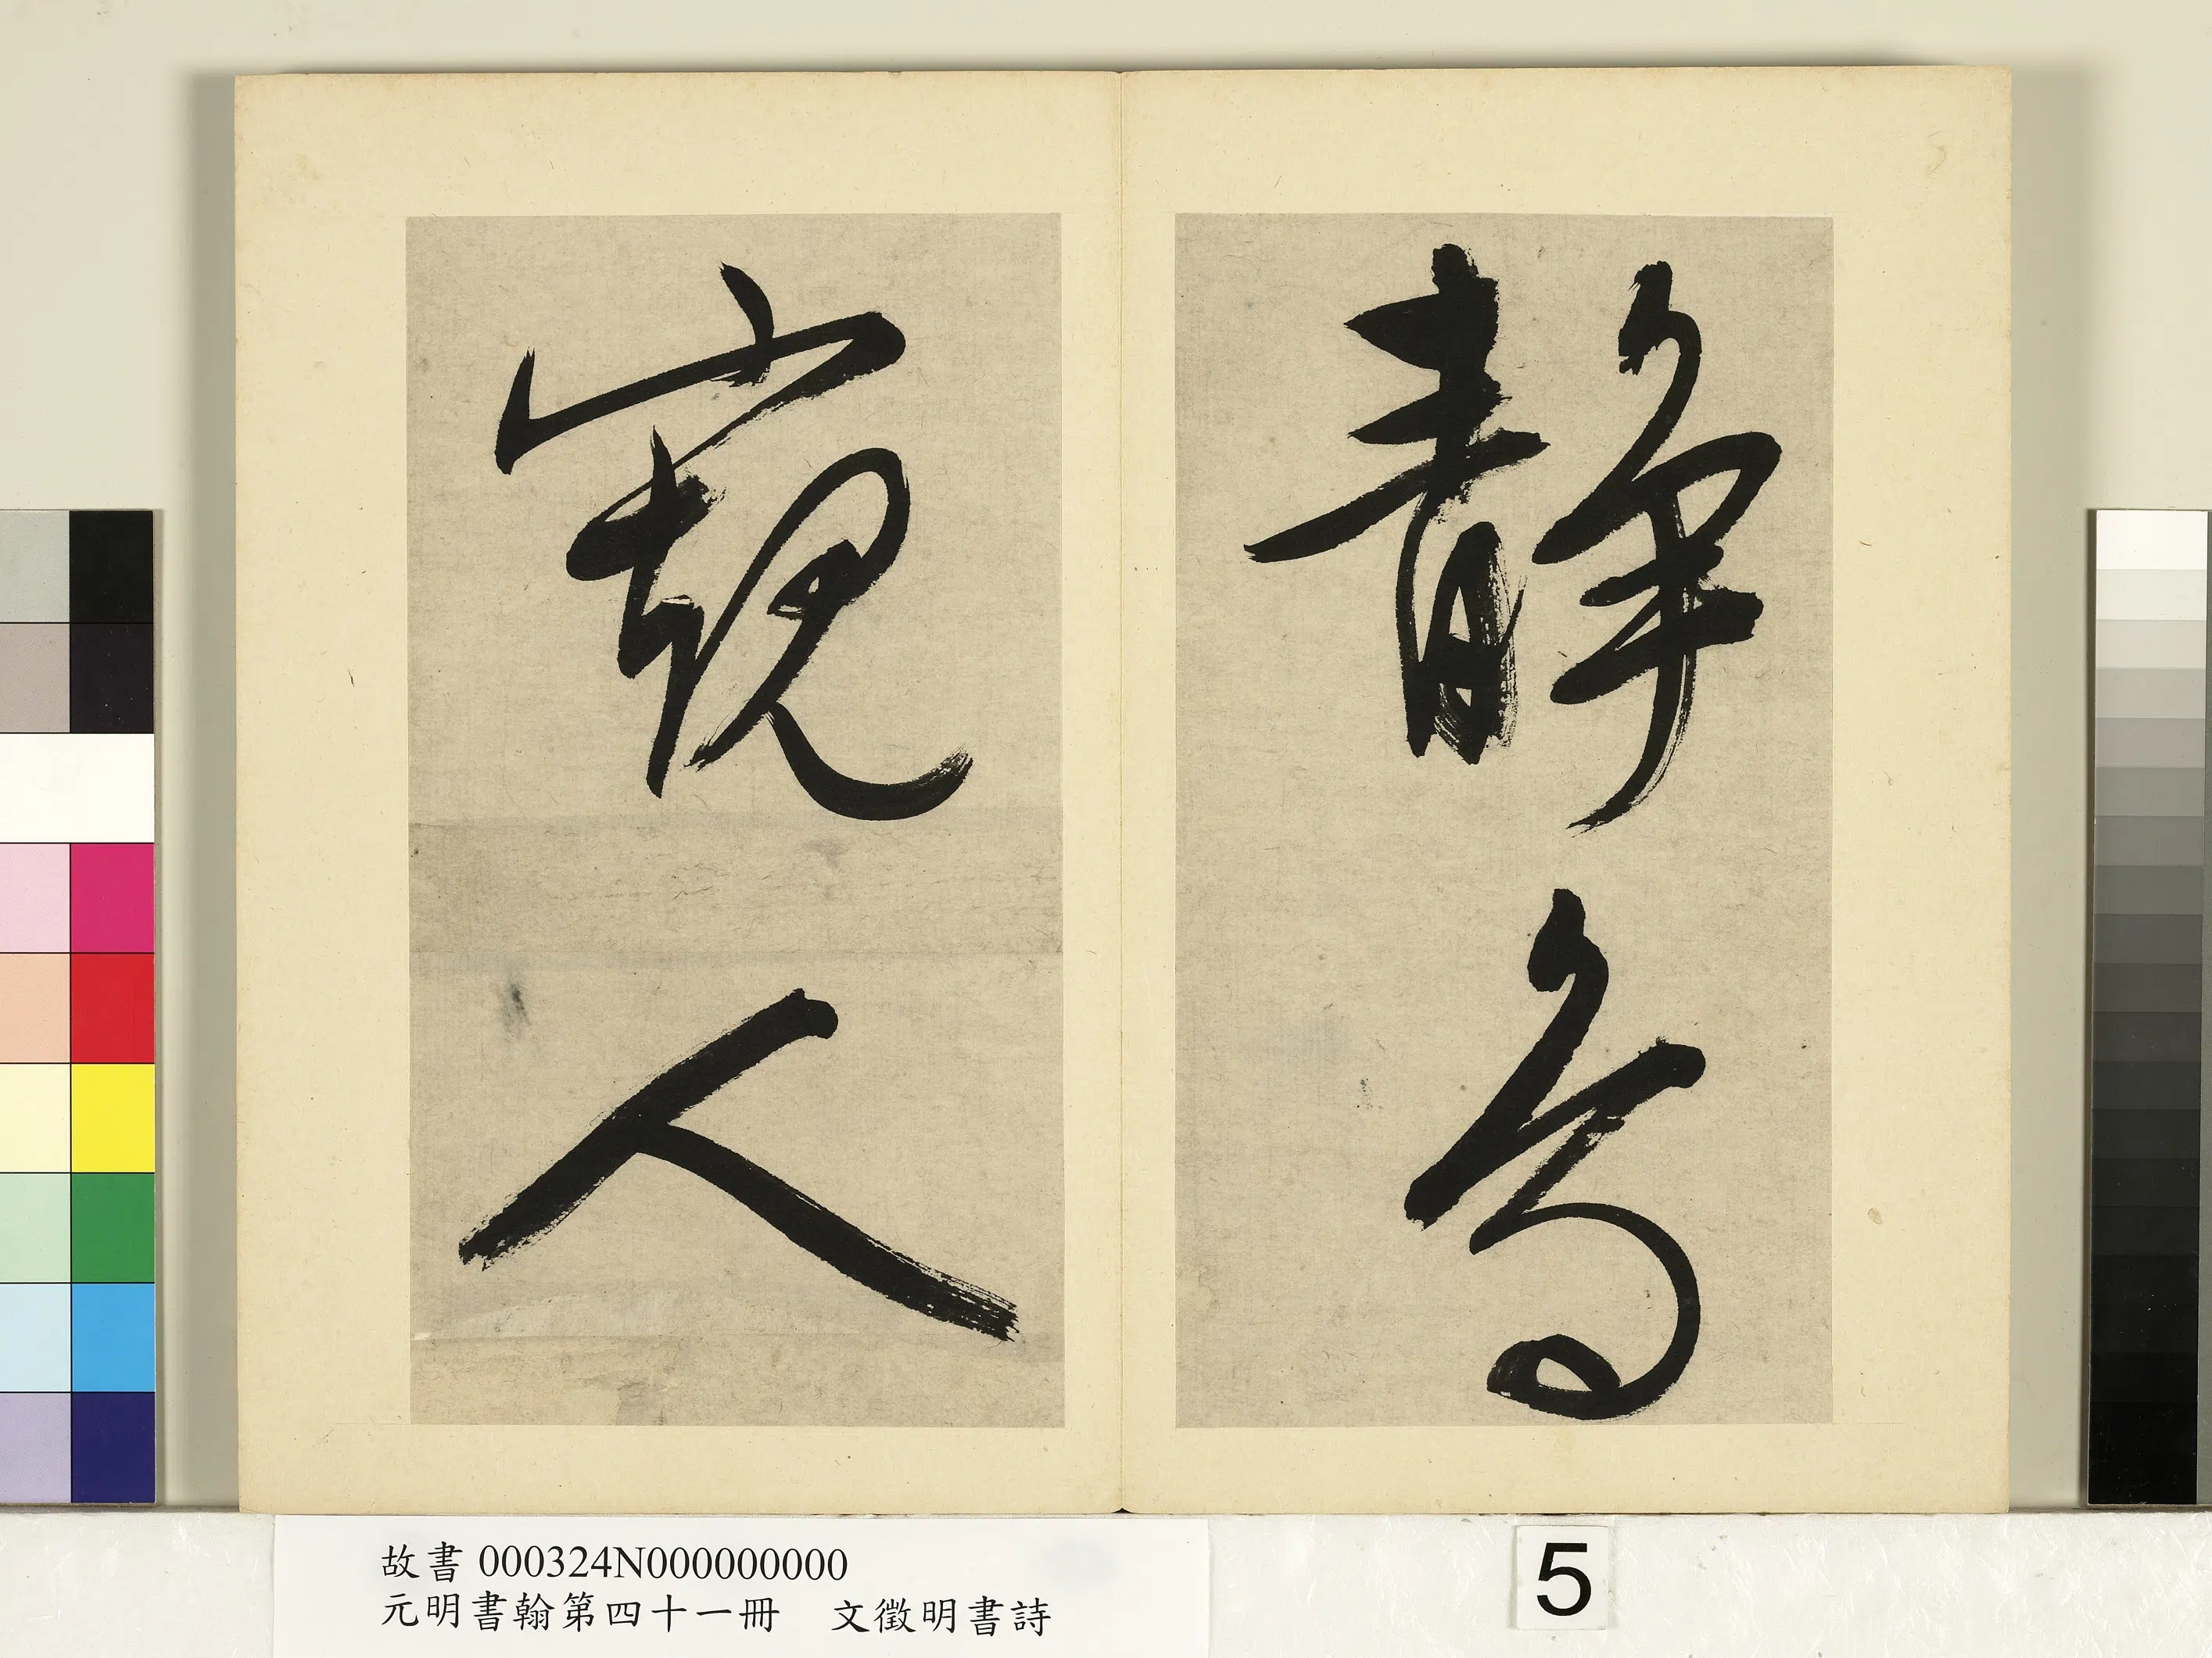 靜鳥
窺人
故書 000324N000000000
元明書翰第四十一冊 文徵明書詩
5